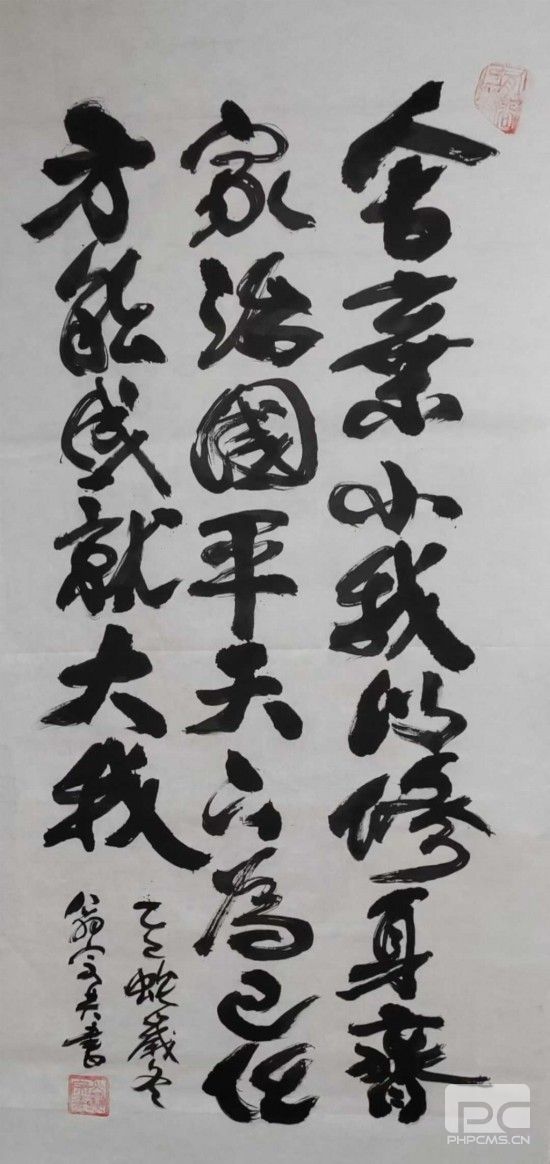 舍棄小我以修身齊
家治國平天下為己任
方能成就大我
乙巳蛇歲冬
翁文夫書
PHPCMS.CN